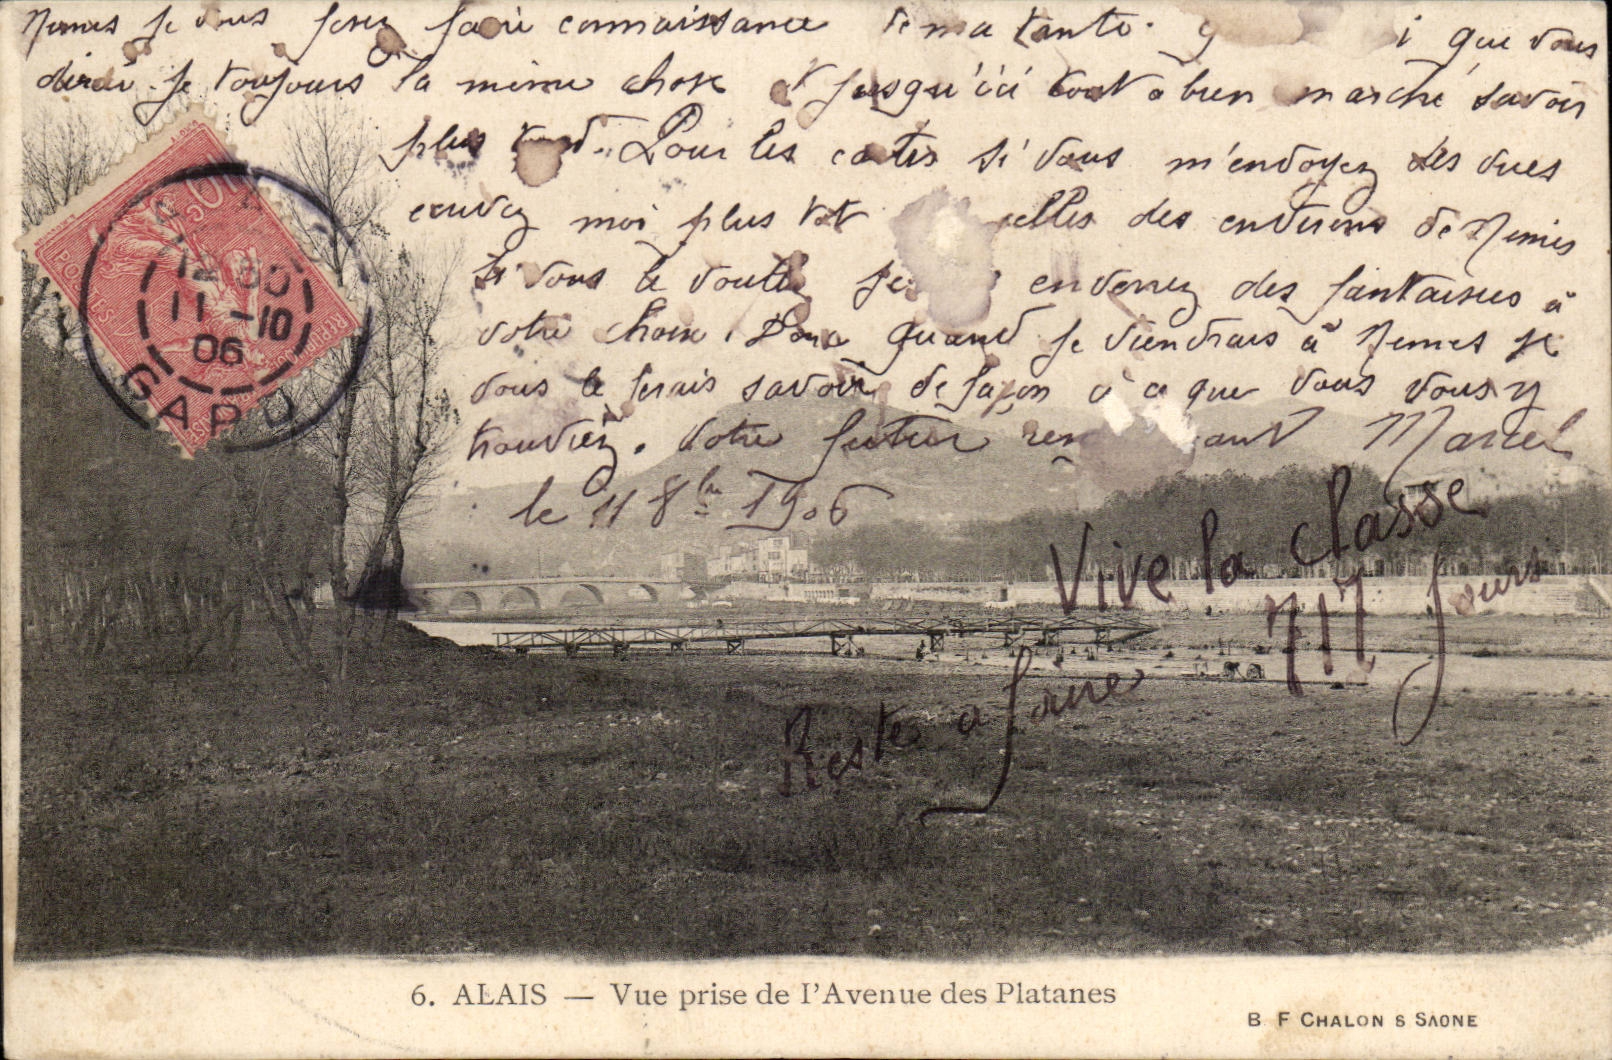 Nimes je vous ferez faire connaissance de ma tante. que vous
dirai je toujours la même chose et jusqu'ici tout a bien marché savoir
plus tard. Pour les cartes si vous m'envoyez des vues
envoyez moi plus tot celles des environs de Nimes
si vous le voulez je enverrez des fantaisies à
votre choix. Donc quand je viendrais à Nimes je
vous le ferais savoir de façon à ce que vous vous y
trouviez. Votre futur Marcel
le 11 8bre 1906
Vive la classe
717 Jours
Reste a faire
10c
POSTES
12 00
11 -10
06
GAP
6. ALAIS — Vue prise de l'Avenue des Platanes
B F CHALON S SAONE